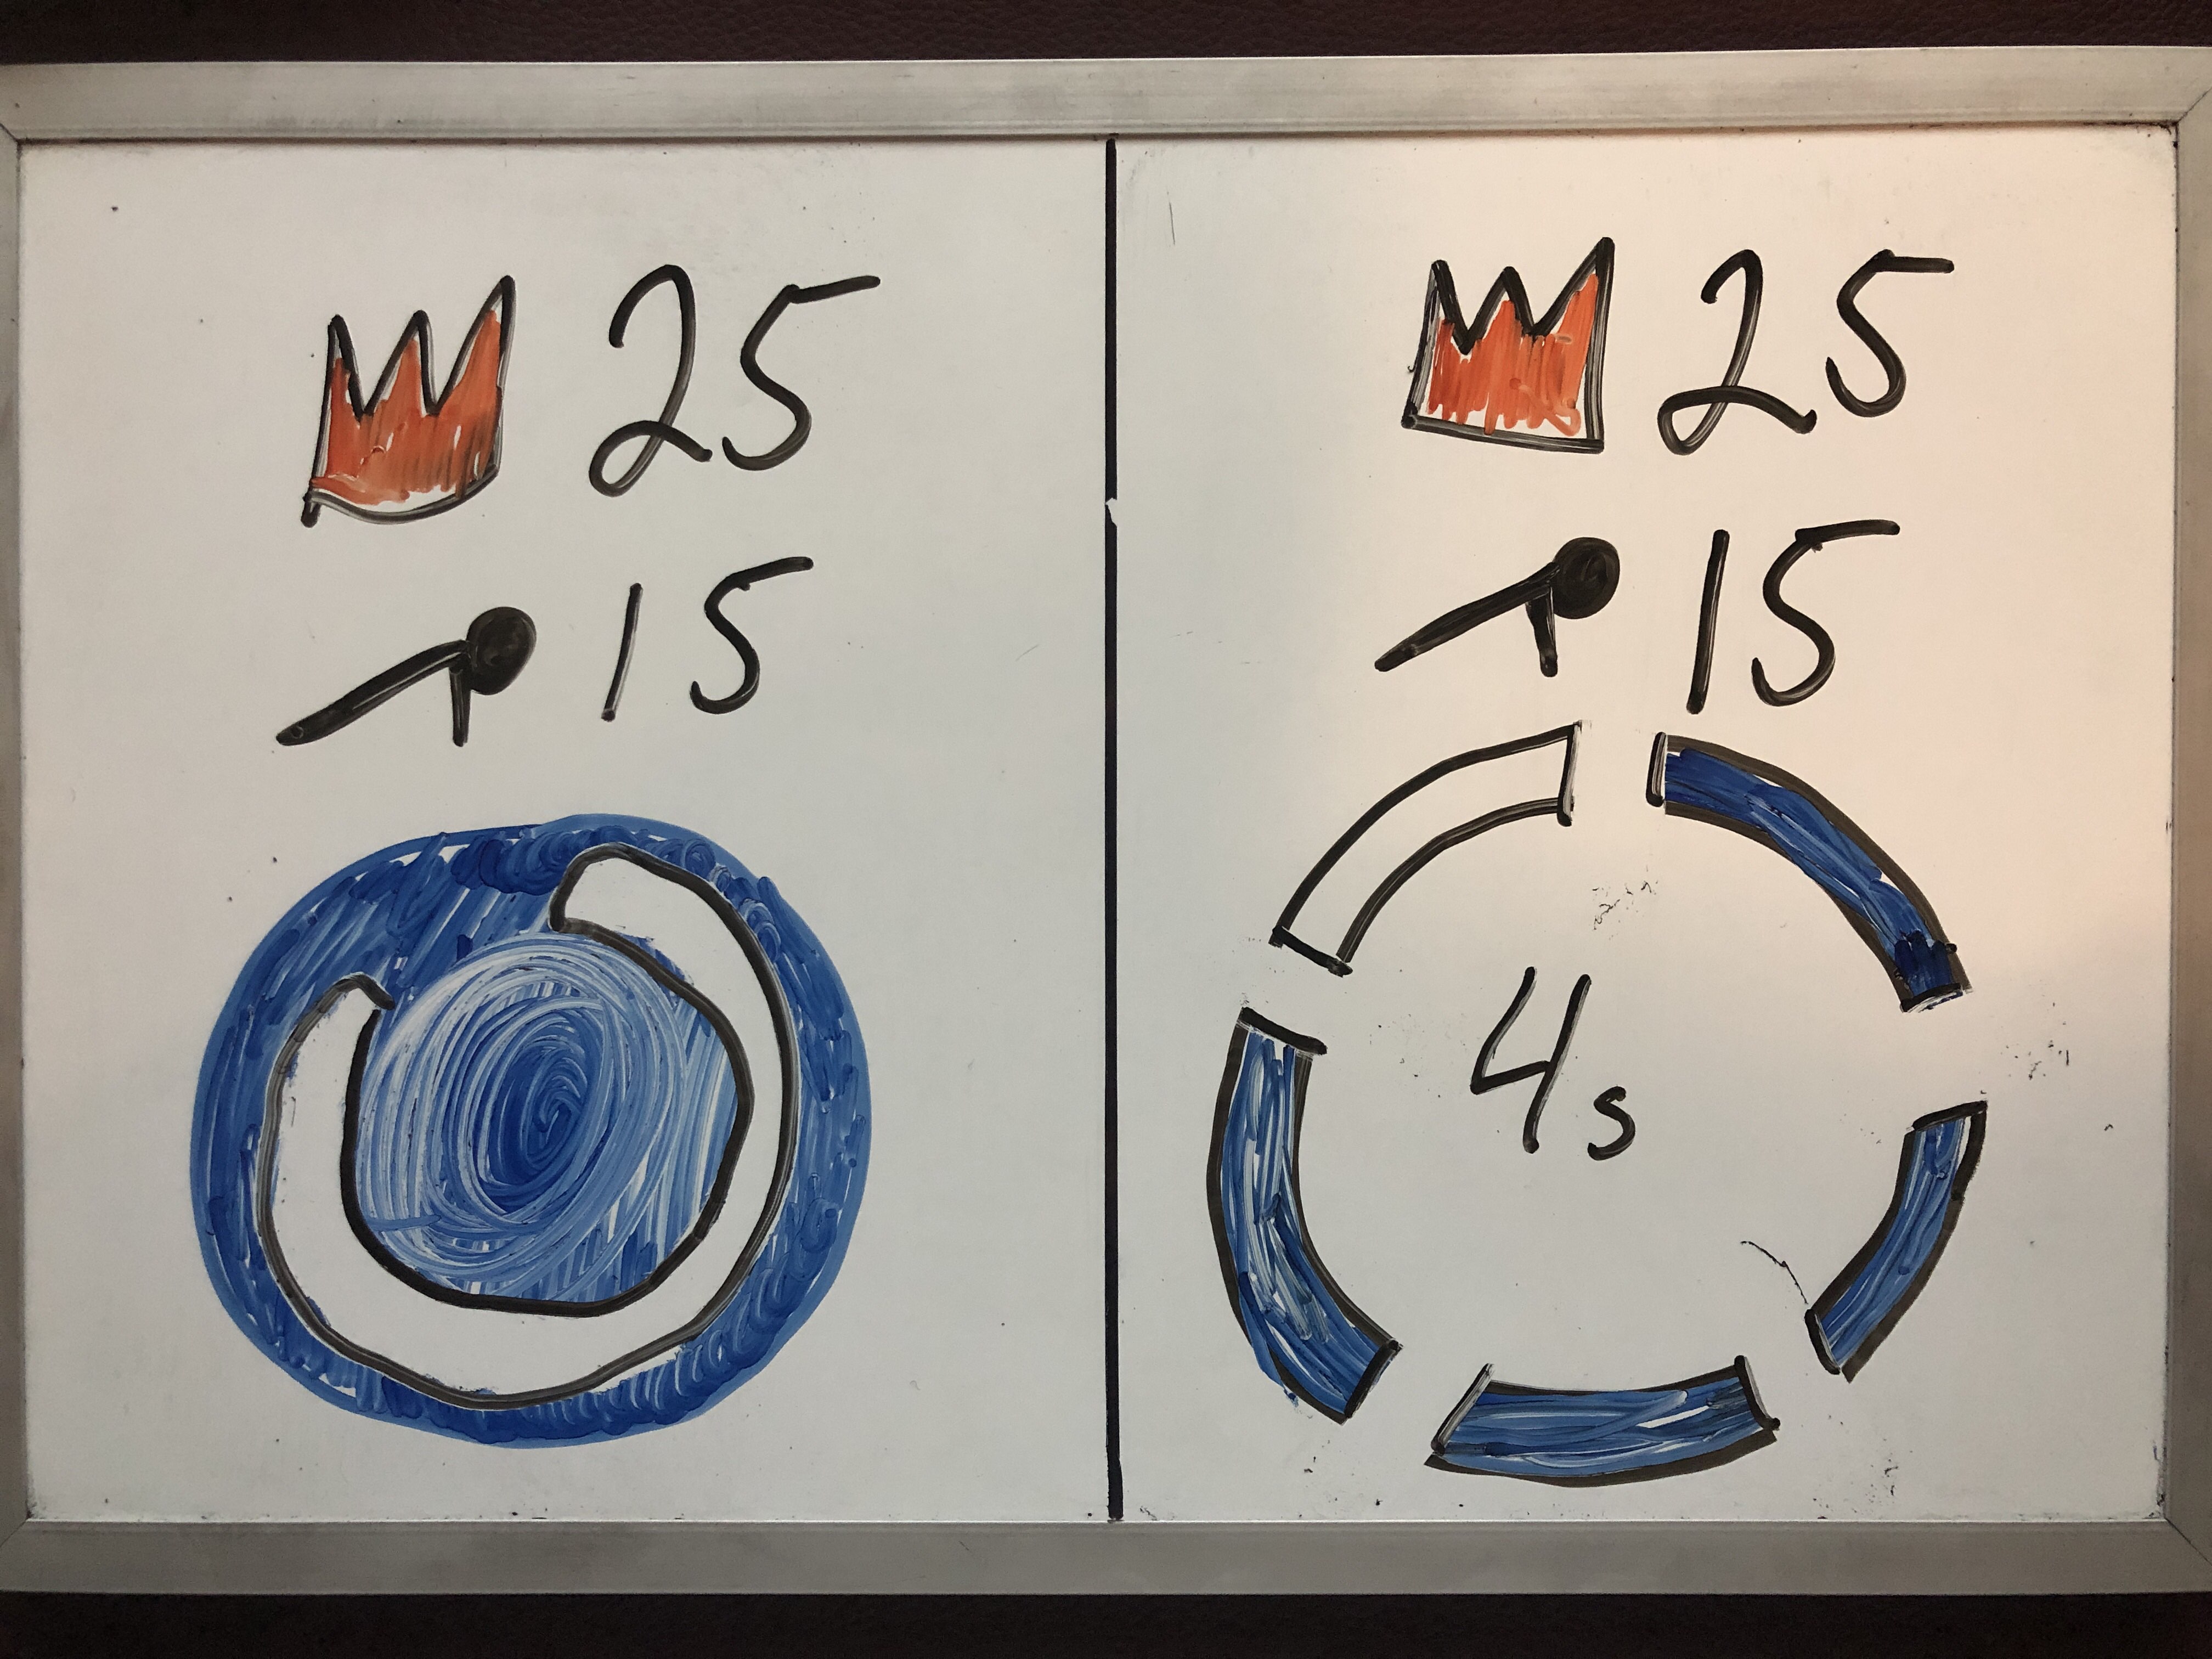 25
15
25
15
4s